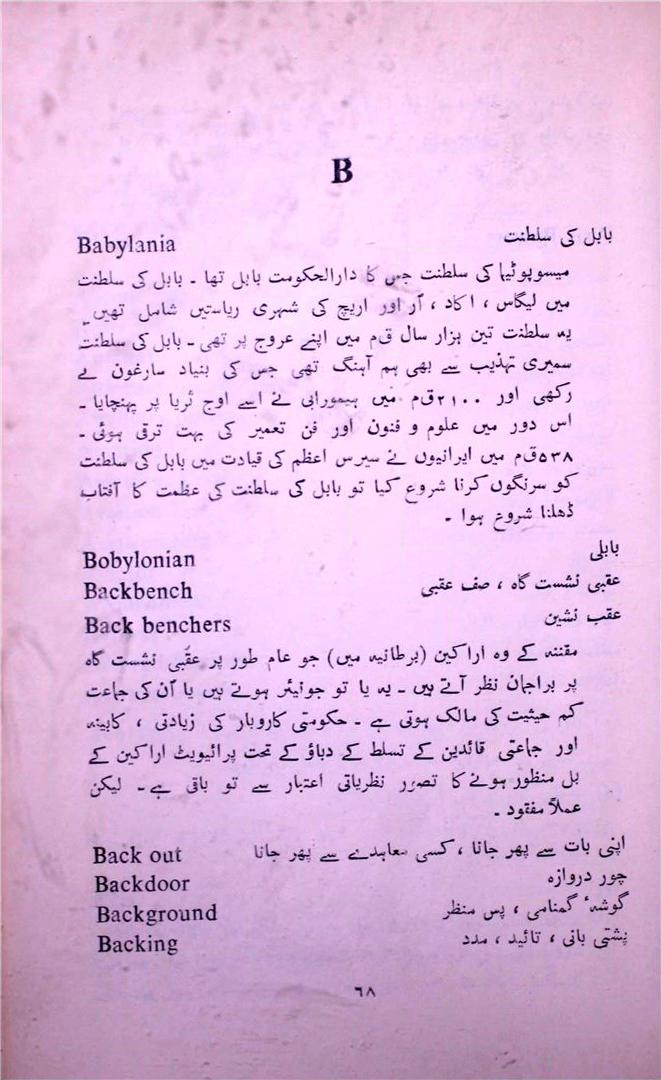 B
Babylania بابل کی سلطنت
میسوپوٹیما کی سلطنت جس کا دارالحکومت بابل تھا ۔ بابل کی سلطنت
میں لیگاس ، اکاد ، آر اور اریچ کی شہری ریاستیں شامل تھیں ۔
یہ سلطنت تین ہزار سال ق م میں اپنے عروج پر تھی ۔ بابل کی سلطنت
سمیری تہذیب سے بھی ہم آہنگ تھی جس کی بنیاد سارغون نے
رکھی اور ۲۱۰۰ ق م میں ہیمورابی نے اسے اوج ثریا پر پہنچایا ۔
اس دور میں علوم و فنون اور فن تعمیر کی بہت ترقی ہوئی ۔
۵۳۸ ق م میں ایرانیوں نے سیرس اعظم کی قیادت میں بابل کی سلطنت
کو سرنگوں کرنا شروع کیا تو بابل کی سلطنت کی عظمت کا آفتاب
ڈھلنا شروع ہوا ۔
Bobylonian بابلی
Backbench عقبی نشست گاہ ، صف عقبی
Back benchers عقب نشین
مقننہ کے وہ اراکین (برطانیہ میں) جو عام طور پر عقبی نشست گاہ
پر براجمان نظر آتے ہیں ۔ یہ یا تو جونیئر ہوتے ہیں یا آن کی جماعت
کم حیثیت کی مالک ہوتی ہے ۔ حکومتی کاروبار کی زیادتی ، کابینہ
اور جماعتی قائدین کے تسلط کے دباؤ کے تحت پرائیویٹ اراکین کے
بل منظور ہونے کا تصور نظریاتی اعتبار سے تو باقی ہے ۔ لیکن
عملاً مفقود ۔
Back out اپنی بات سے پھر جانا ، کسی معاہدے سے پھر جانا
Backdoor چور دروازہ
Background گوشۂ گمنامی ، پس منظر
Backing پشتی بانی ، تائید ، مدد
۶۸